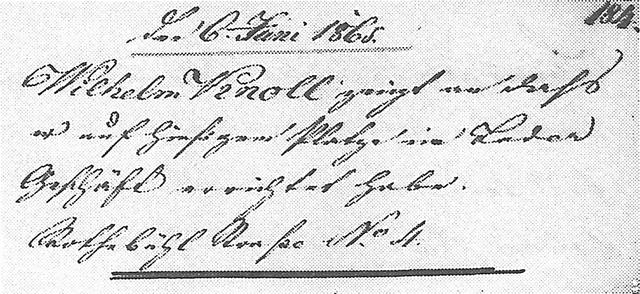 184.
den 6. Juni 1865.
Wilhelm Knoll zeigt an dass
er auf hiesigem Platze ein Leder
Geschäft errichtet habe.
Rothebühl Strasse No 4.